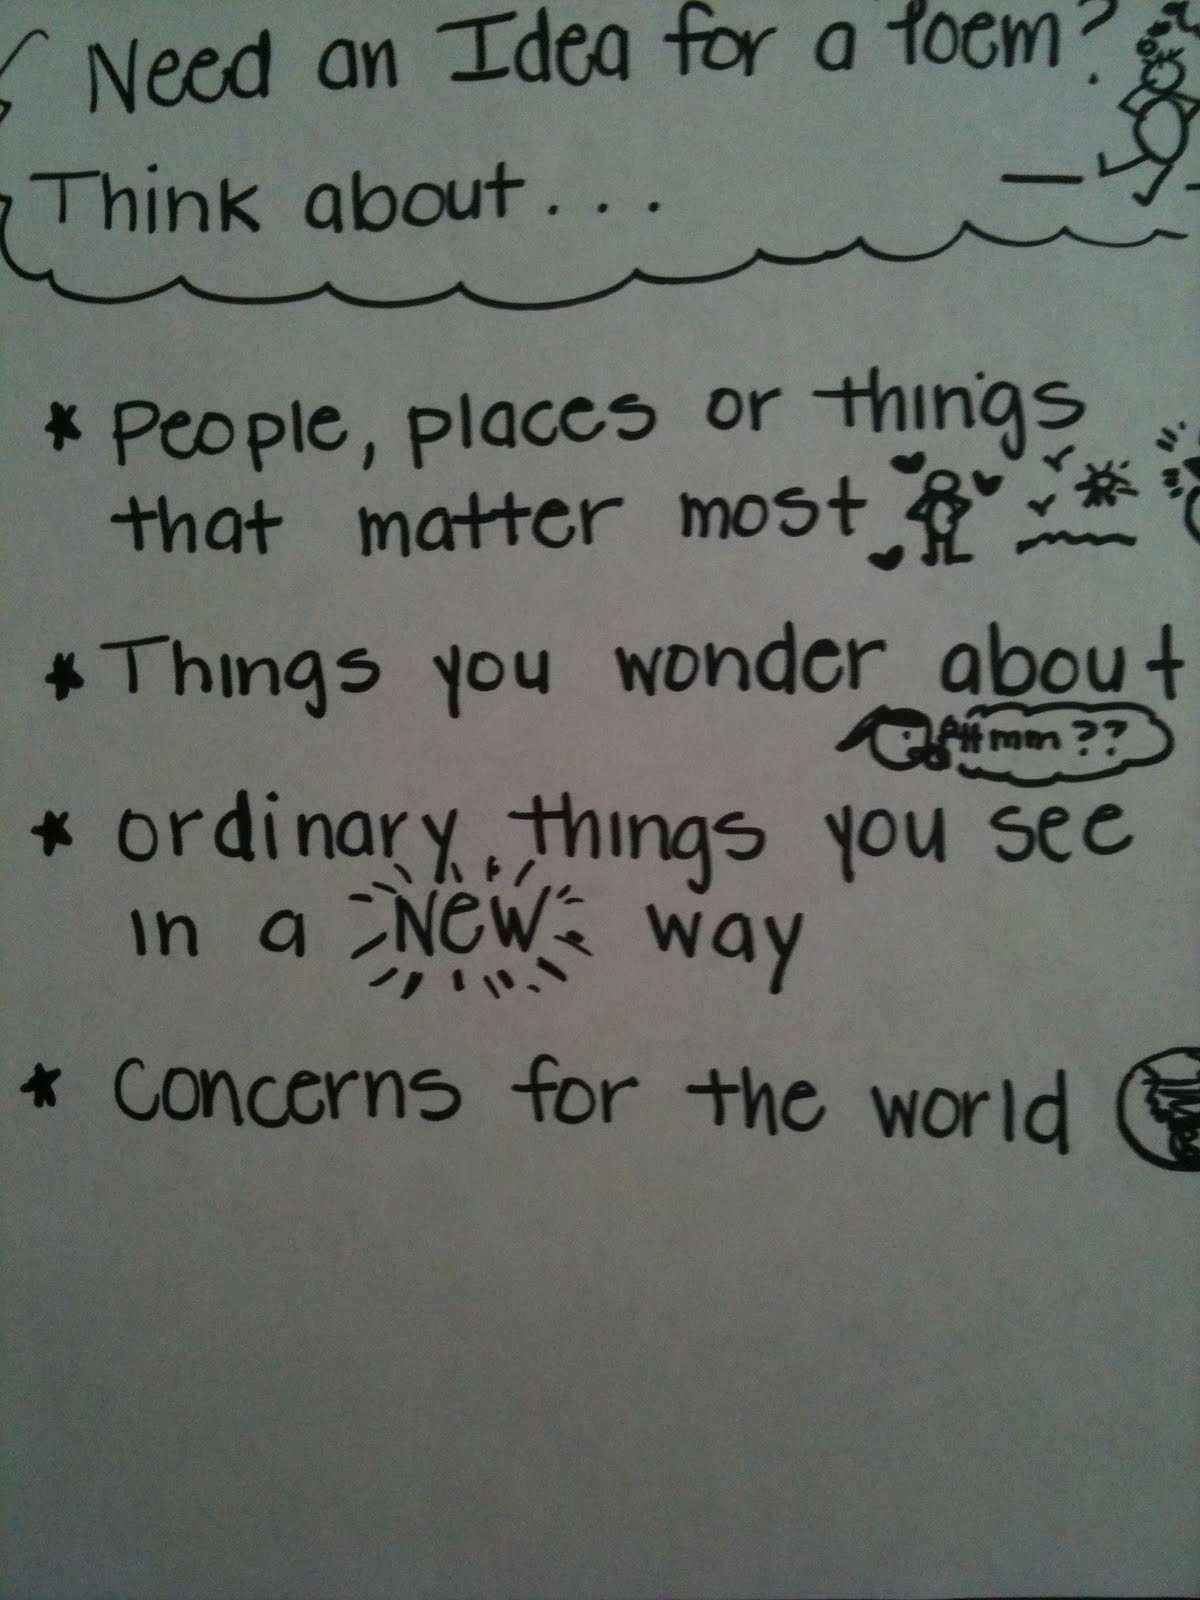 Need an Idea for a Poem?
Think about...
* People, places or things
that matter most
* Things you wonder about
Hmmm??
* ordinary things you see
in a New way
* Concerns for the world